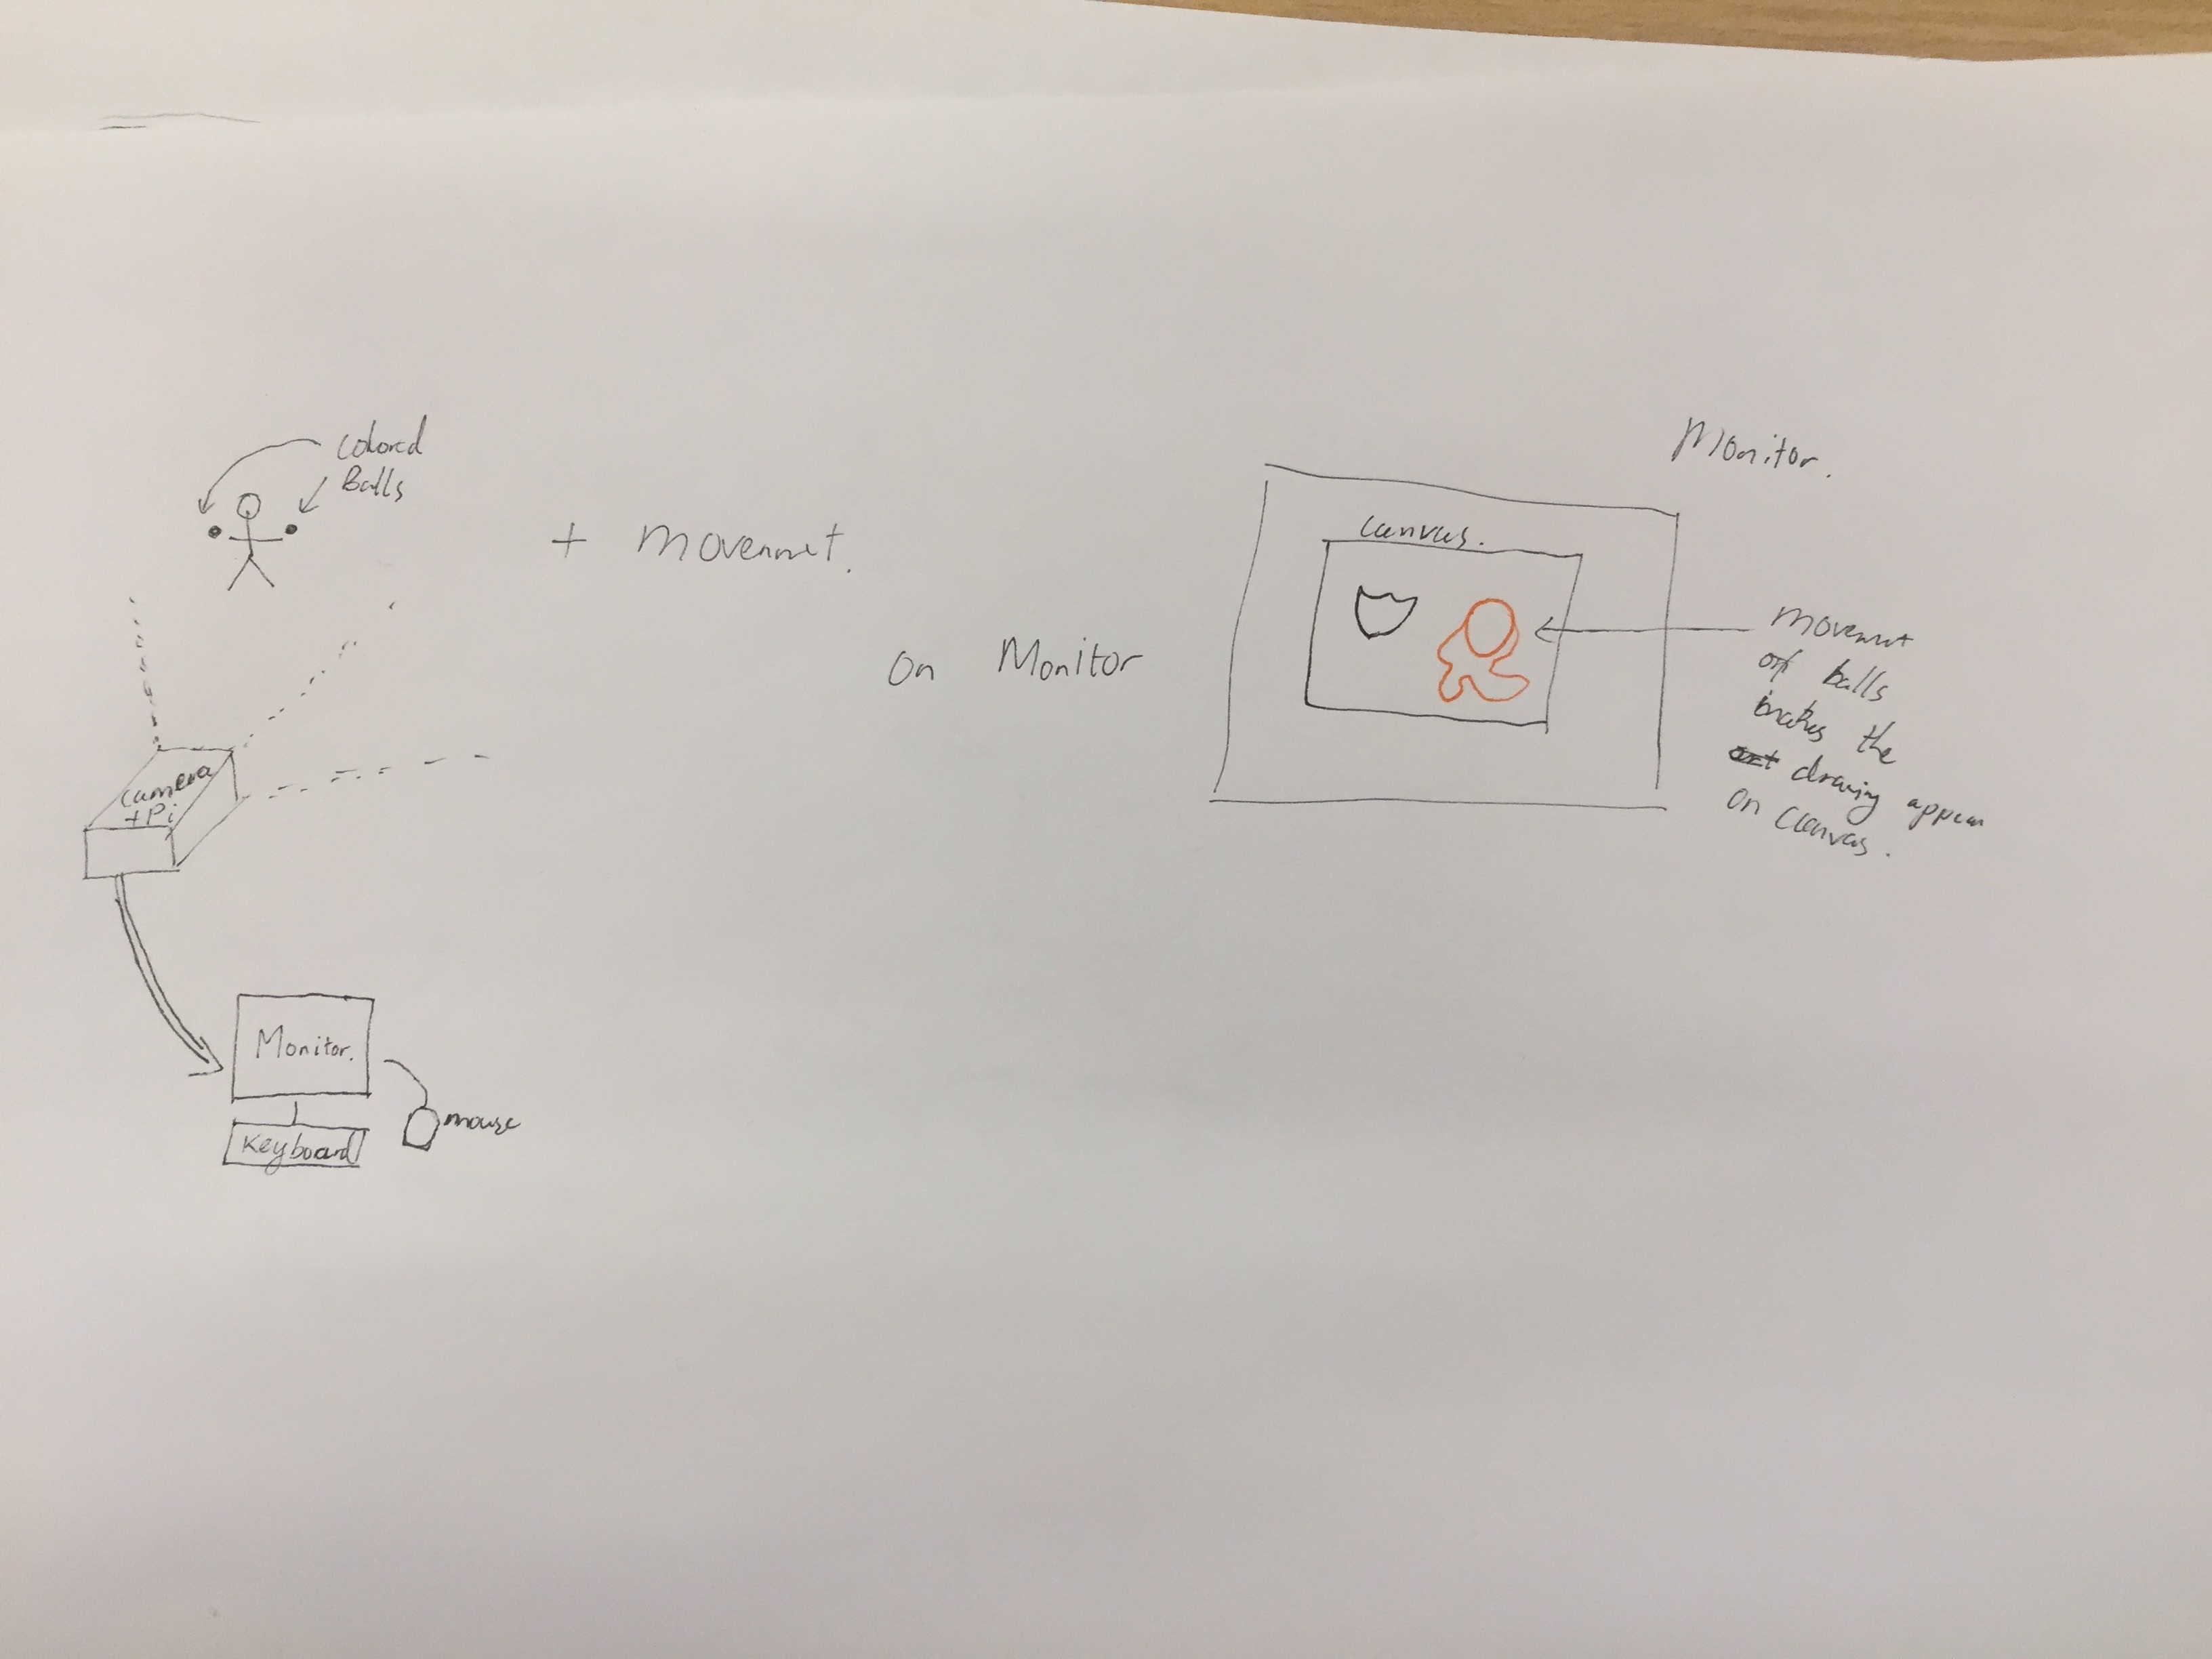 Colored
Balls
+ movemnt.
camera
+Pi
Monitor.
Keyboard
mouse
on Monitor
Monitor.
canvas.
movemnt
of balls
makes the
art drawing appear
on canvas.